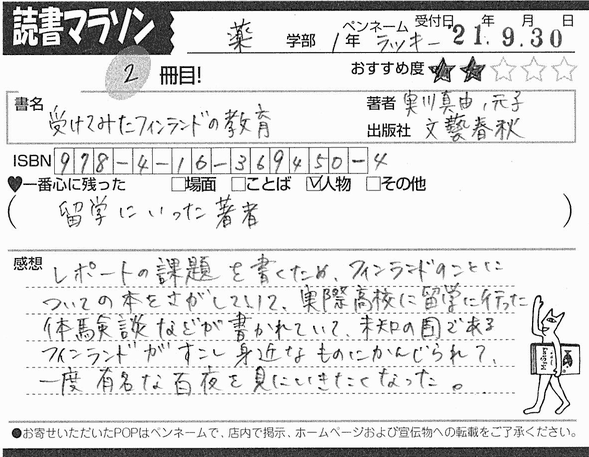 読書マラソン
薬 学部 1年 ペンネーム ラッキー 受付日 21.年 9.月 30日
2 冊目!
おすすめ度 ★★☆☆☆
書名 受けてみたフィンランドの教育
著者 実川真由、元子
出版社 文藝春秋
ISBN 978-4-16-369450-4
♥一番心に残った □場面 □ことば ☑人物 □その他
( 留学にいった著者 )
感想 レポートの課題を書くため、フィンランドのことに
ついての本をさがしていて、実際高校に留学に行った
体験談などが書かれていて、未知の国である
フィンランドがすこし身近なものにかんじられて、
一度有名な百夜を見にいきたくなった。
●お寄せいただいたPOPはペンネームで、店内で掲示、ホームページおよび宣伝物への転載をご了承ください。